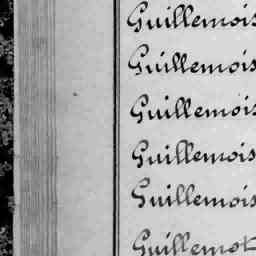 Guillemois
Guillemois
Guillemois
Guillemois
Guillemois
Guillemot